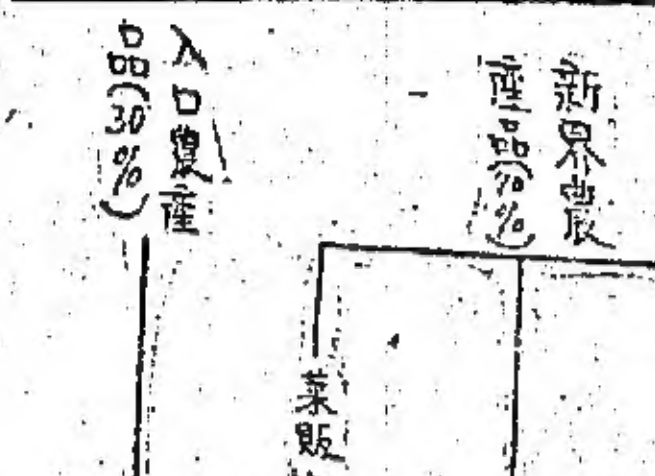 新界農
產品(70%)
入口農產
品(30%)
菜販